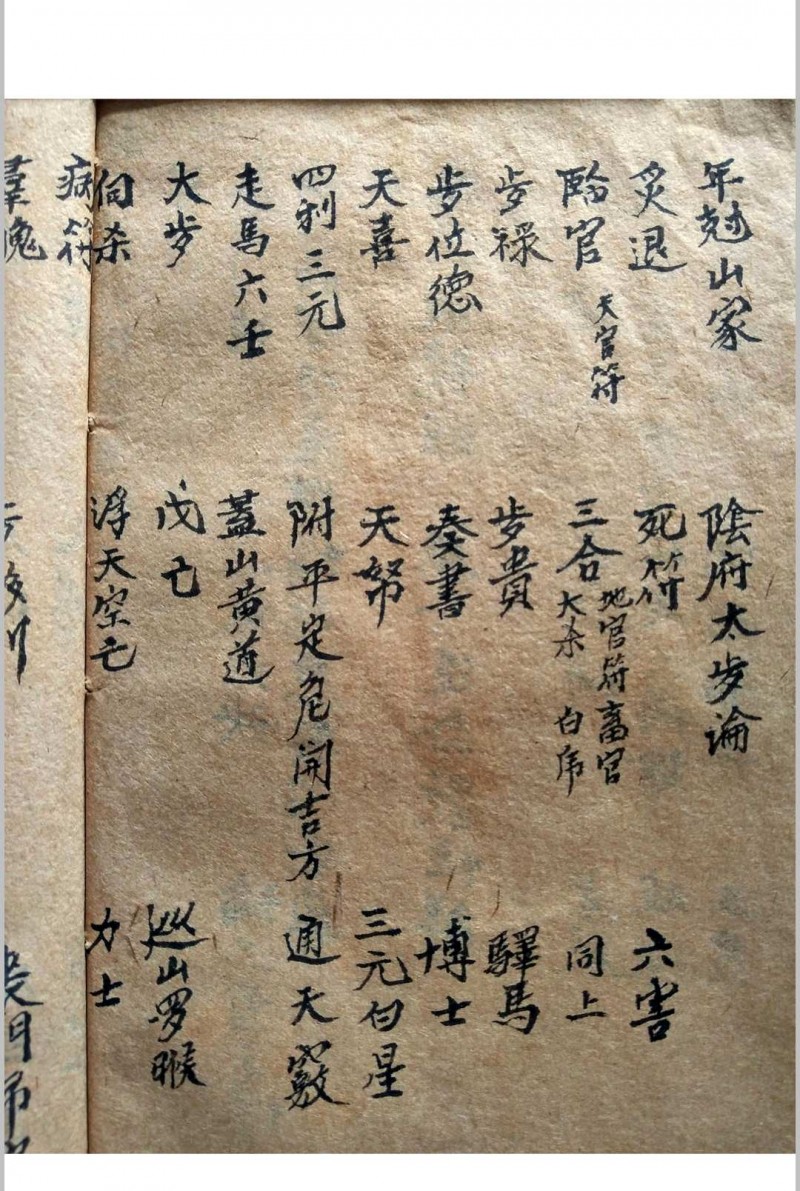 年尅山家 陰府太歩論
炙退 死符 六害
臨官 天官符 三合 地官符畜官 大杀 白虎 同上
歩禄 歩貴 驛馬
歩位德 奏書 博士
天喜 天帑 三元白星
四利三元 附平定危開吉方 通天竅
走馬六壬 蓋山黄道
大歩 戊亡 巡山罗睺
伺杀 浮天空亡 力士
病符